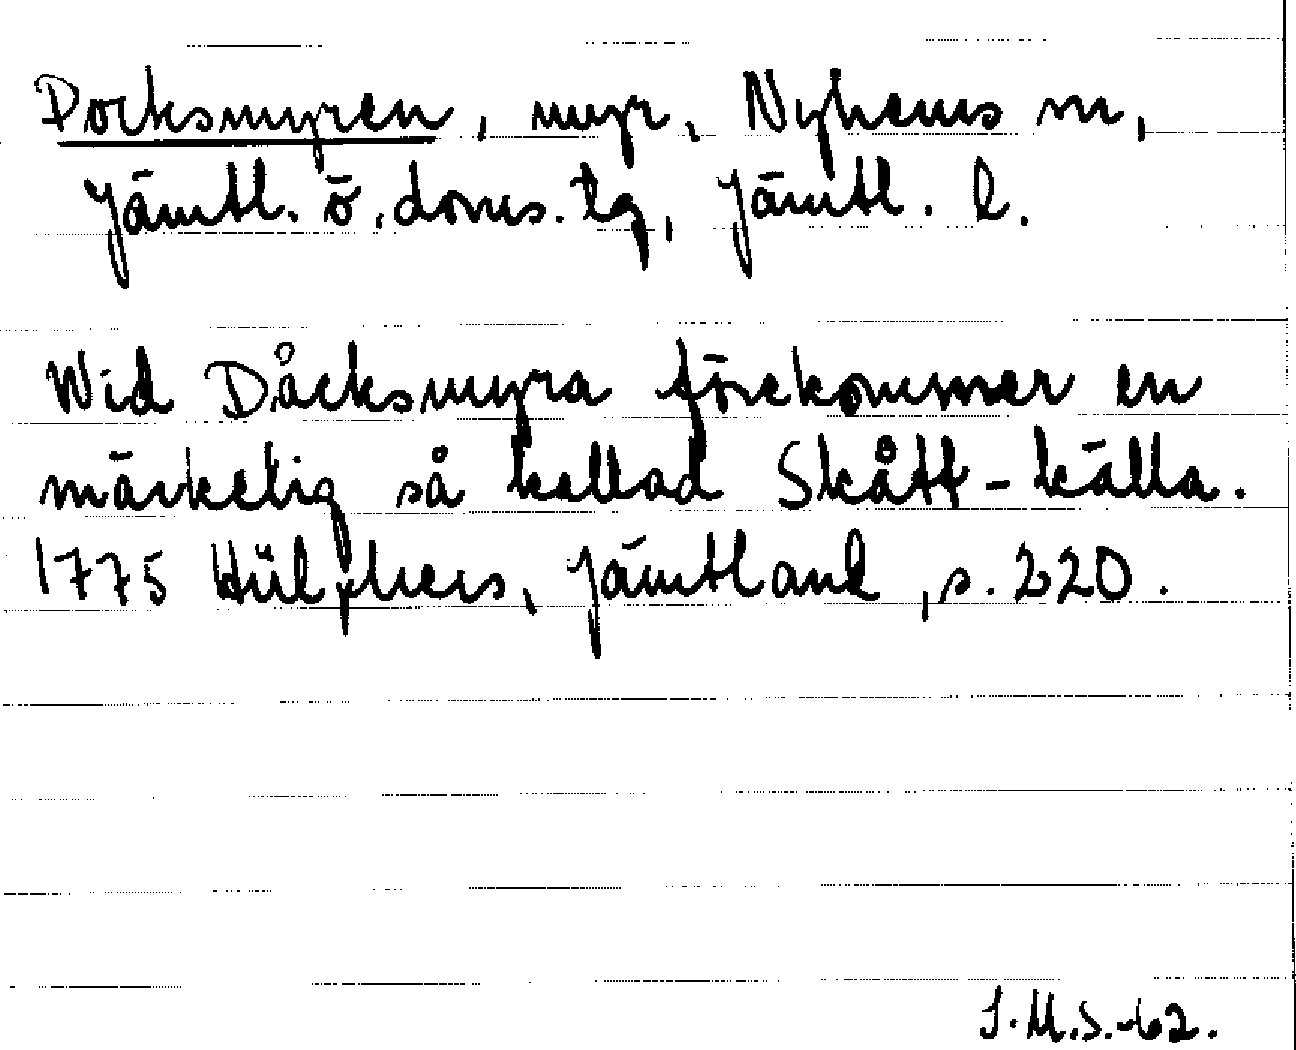 Docksmyren, myr, Nyhems sn,
Jämtl. ö. doms. tg, Jämtl. l.
Wid Dåcksmyra förekommer en
märkelig så kallad Skått-källa.
1775 Hülphers, Jämtland, s. 220.
I.M.S.-62.